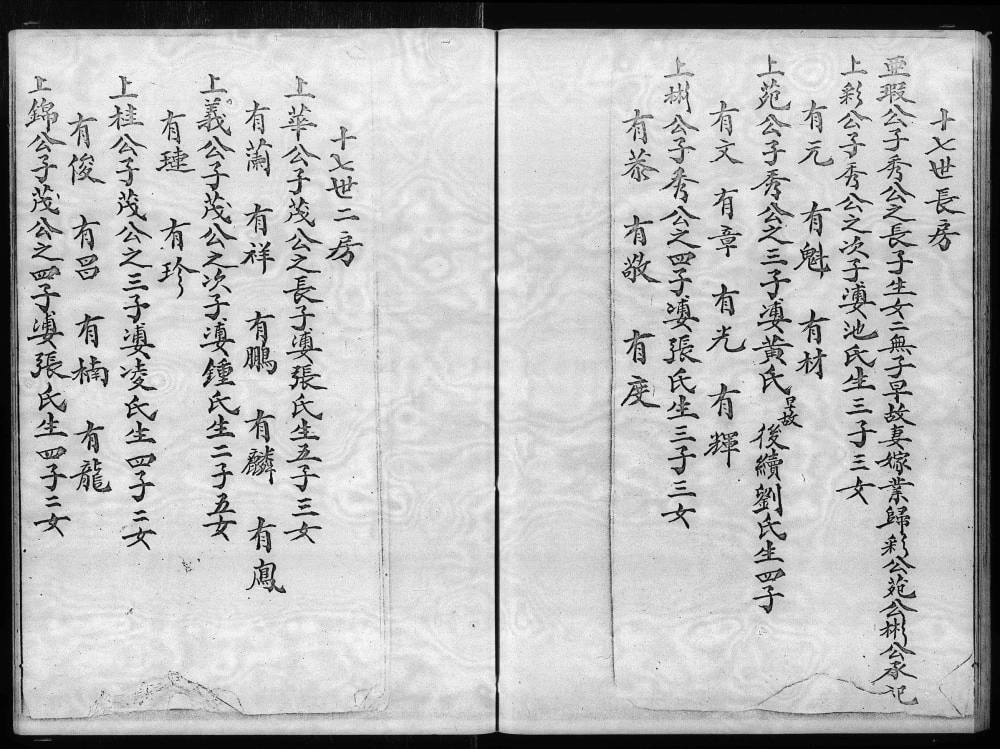 十七世長房
亞瑕公子秀公之長子生女二無子早故妻嫁業歸彩公苑公彬公承祀
上彩公子秀公之次子凄池氏生三子三女
有元 有魁 有材
上苑公子秀公之三子凄黃氏早故後續劉氏生四子
有文 有章 有光 有輝
上彬公子秀公之四子凄張氏生三子三女
有恭 有敬 有度
十七世二房
上華公子茂公之長子凄張氏生五子三女
有蘭 有祥 有鵬 有麟 有鳳
上義公子茂公之次子凄鍾氏生二子五女
有璉 有珍
上桂公子茂公之三子凄凌氏生四子二女
有俊 有昌 有楠 有龍
上錦公子茂公之四子凄張氏生四子二女